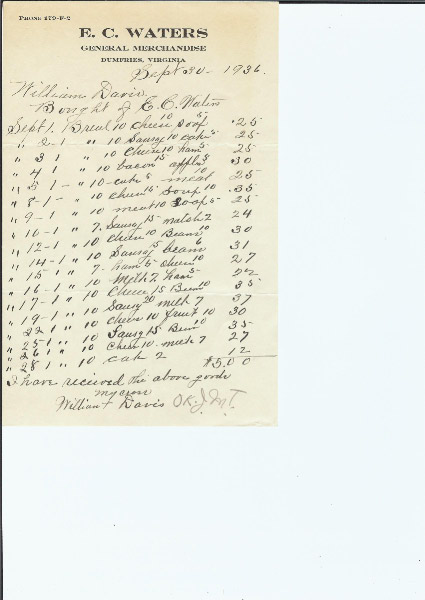 PHONE 179-F-2
E. C. WATERS
GENERAL MERCHANDISE
DUMFRIES, VIRGINIA
Sept 30 - 1936.
William Davis
Bought of E. C. Waters
Sept 1. Bread 10 cheese 10 soup 5 .25
" 2-1 " 10 Sausg 10 cake 5 25
" 3 1 " 10 cheese 10 ham 5 25
" 4 1 " 10 bacon 15 apples 5 .30
" 5 1 - " 10 - cake 5 meat 10 25
" 8-1 - " 10 cheese 15 soup 10 .35
" 9-1 " 10 meat 10 soap 5 25
" 10-1 " 7. Sausg 15 match 2 24
" 12-1 " 10 cheese 10 Beans 10 30
" 14-1 " 10 Sausg 15 beans 6 31
" 15 1 " 7. ham 5 cheese 10 27
" 16-1 " 10 Milk 7 ham 5 22
" 17-1 " 10 Cheese 15 Bean 10 35
" 19-1 " 10 Sausg 20 milk 7 37
" 22 1 " 10 cheese 10 fruit 10 30
" 25 1 " 10 Sausg 15 Bean 10 35
" 26 1 " 10 Cheese 10 - milk 7 27
" 28 1 " 10 cake 2 12
$5.00
I have received the above goods
my cross
William + Davis OK. J. M. T.